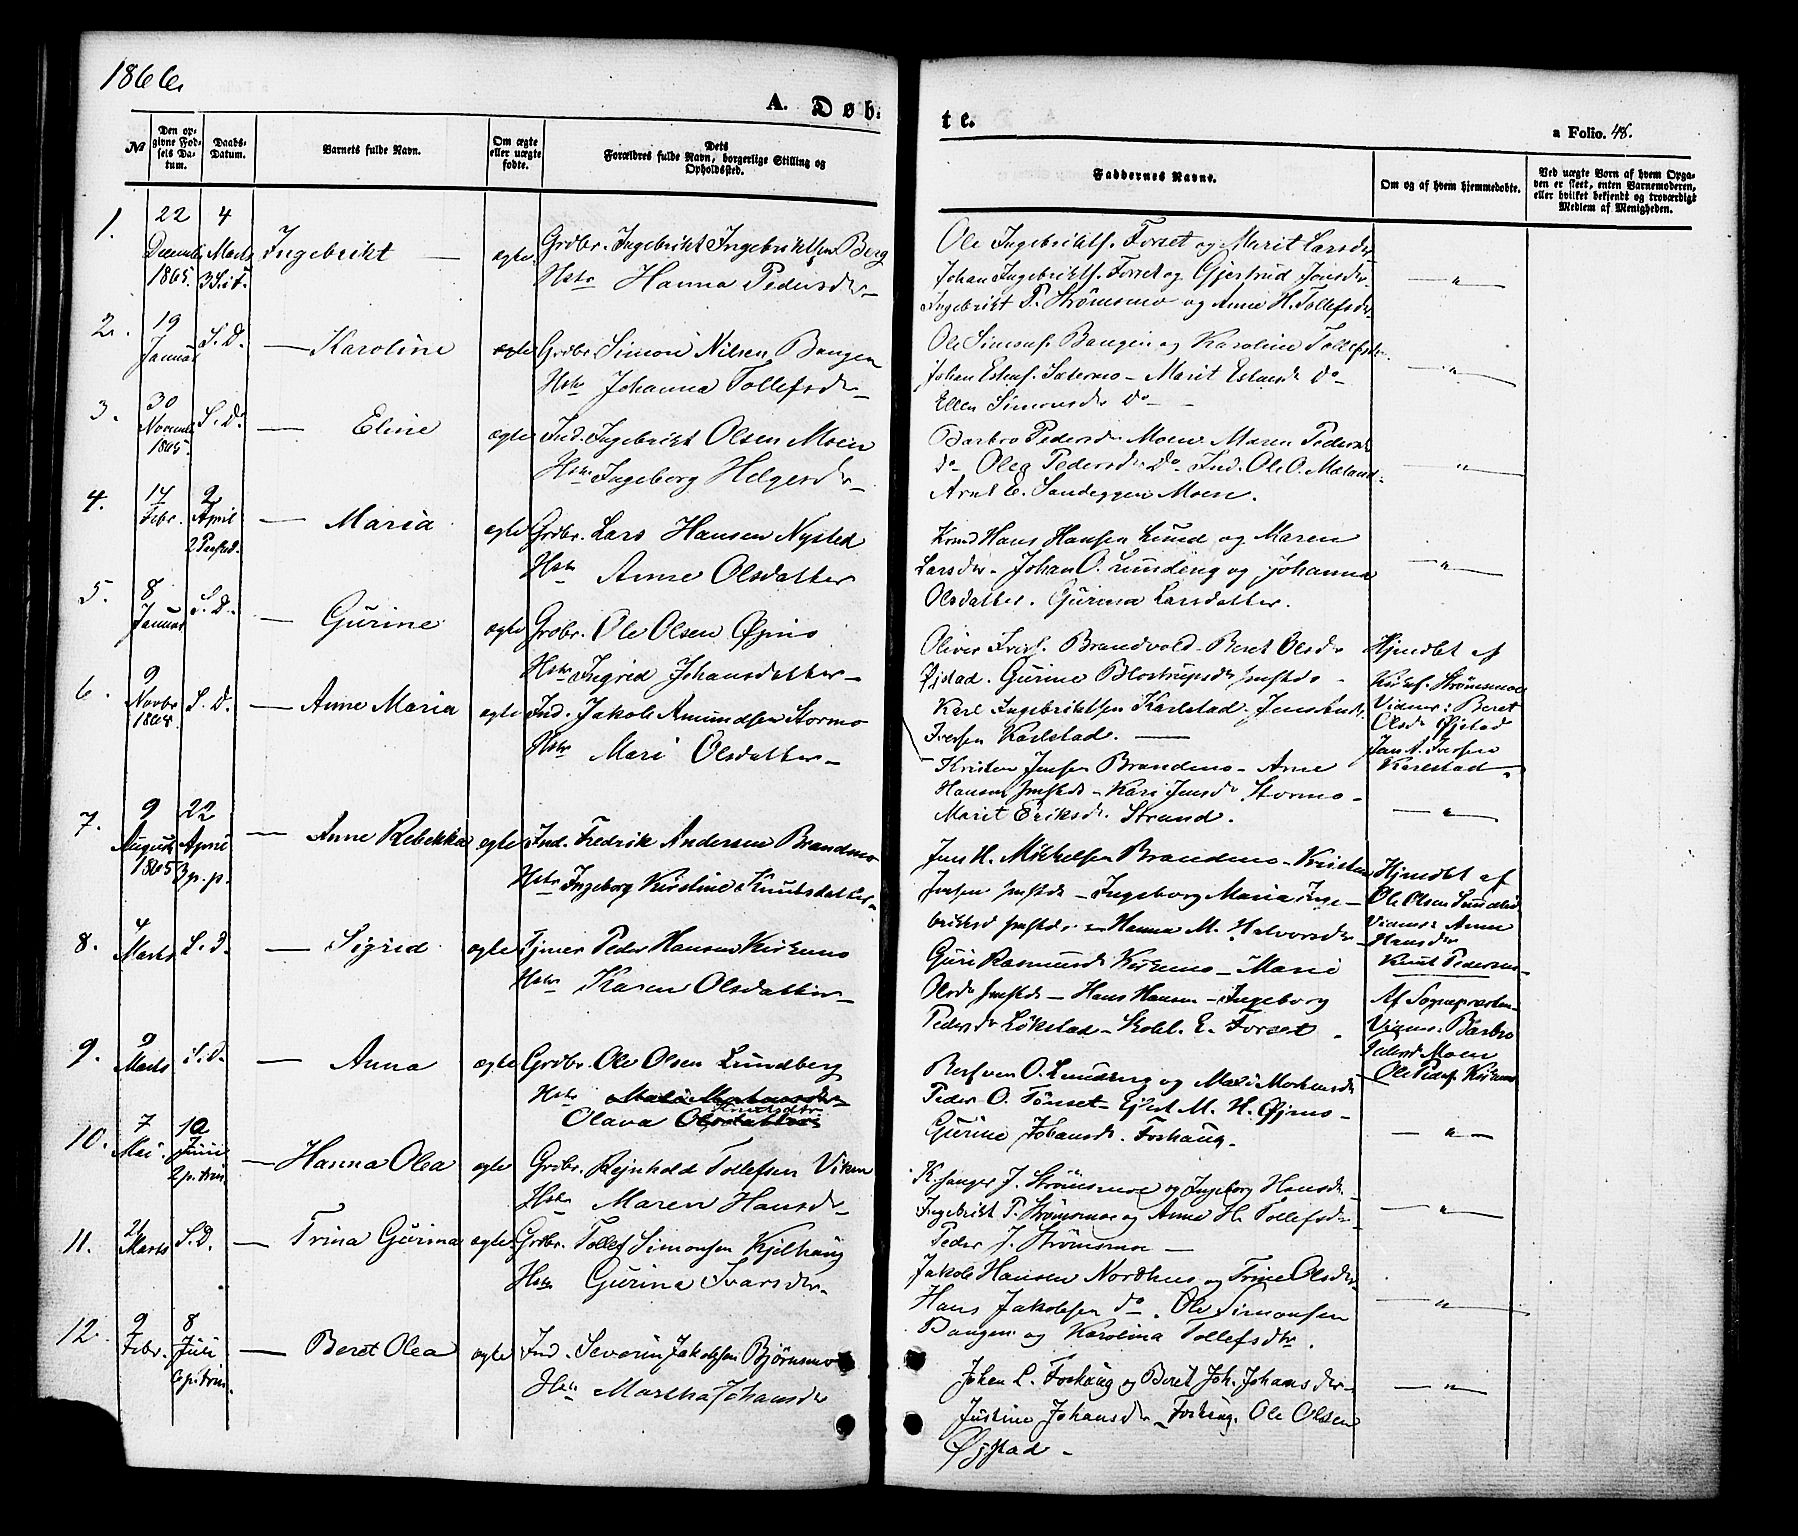 1866.
A. Døb-
te.
a Folio. 48.
№
Den op-
givne Fød-
sels Da-
tum.
Daabs-
Datum.
Barnets fulde Navn.
Om ægte
eller uægte
fødte.
Dets
Forældres fulde Navn, borgerlige Stilling og
Opholdssted.
Faddernes Navne.
Om og af hvem hjemmedøbte.
Ved uægte Børn af hvem Opga-
ven er skeet, enten Barnemoderen,
eller hvilket bekjendt og troværdigt
Medlem af Menigheden.
1.
22 Decemb. 1865.
4 Marts 3 S. i F.
Ingebrikt —
ægte
Grdbr. Ingebrikt Ingebriktsen Berg
Hstr Hanna Pedersdr
Ole Ingebriktsf. Forset og Marit Larsdr
Johan Ingebriktsf. Forset og Gjertrud Jonsdr
Ingebrikt P. Strømsmo og Anne H. Tollefsdr
— " —
2.
19 Januar
S. D.
— Karoline
ægte
Grdbr. Simon Nilsen Bangen
Hstr Johanna Tollefsdr
Ole Simonsf. Bangen og Karoline Tollefsdr.
Johan Estensf. Sætermo - Marit Estensdr do
Ellen Simonsdr do
— " —
3.
30 Novemb. 1865.
S. D.
— Eline
ægte
Ind. Ingebrikt Olsen Moen
Hstr Ingeborg Helgesdr
Barbro Pedersdr Moen. Maren Pedersdr
do Olea Pedersdr do. Ind. Ole O. Moland.
Arnt E. Sandeggen Moen.
— " —
4.
17 Febr.
2 April 2 Paaskd.
— Maria
ægte
Grdbr. Lars Hansen Nysted
Hstr Anne Olsdatter
Hans Hansen Lund og Maren
Larsdr. Johan O. Lundeng og Johanna
Olsdatter. Gurina Larsdatter.
— " —
5.
8 Januar
S. D.
— Gurine
ægte
Grdbr. Ole Olsen Øjmo
Hstr Ingrid Johansdatter
Brandvold. Beret Olsdr
Øjstad. Gurine
Karl Ingebriktsen Karlstad.
Iversen Karlstad. —
Hjmdbt af
Strømsmoe
Vidner: Beret
Olsdr Øjstad
Jan A. Iversen
Karlstad
6.
9 Novbr
S. D.
— Anne Maria
ægte
Ind. Jakob Amundsen Stormo
Hstr Mari Olsdatter
Kristen Jensen Brandmo - Arne
Hansen - Kari Jensdr Stormo -
Marit Eriksdr. Strand.
— " —
7.
9 August 1865
22 April 3 p. p.
— Anne Rebekka
ægte
Ind. Fredrik Andersen Brandmo
Hstr Ingeborg Kirstine Knutsdatter
Jens H. Mikkelsen Brandmo - Kristen
Jensen - Ingeborg Maria Inge-
briktsd - Hanna M. Halvorsdr
Hjmdbt af
Ole Olsen
Vidner: Anne
Hansdr
Knut Pedersen
8.
4 Marts
S. D.
— Sigrid
ægte
Tjener Peder Hansen Kirkmo
Hstr Karen Olsdatter
Guri Rasmusdr Kirkmo - Marie
Olsdr - Hans Hansen - Ingeborg
Pedersdr Løkstad - Skohl. E. Forset.
Af Sognepresten
Vidner: Barbro
Pedersd Moen
Ole Pedersf. Kirkmo
9.
9 Marts
S. D.
— Anna
ægte
Grdbr. Ole Olsen Lundberg
Hstr
Olava Knutsdtr
O. Lundeng og Mari Mortensdr
Peder O. Tønset - Ejlert M. H. Øjmo -
Gurine Johansdr. Forhaug.
— " —
10.
7 Mai.
10 Juni 2 p. trin.
— Hanna Olea
ægte
Grdbr. Rejnhold Tollefsen Viken
Hstr Maren Hansdr
K.sanger J. Strømsmoe og Ingeborg Hansdr.
Ingebrikt P. Strømsmoe og Anne H. Tollefsdr
Peder J. Strømsmoe —
— " —
11.
21 Marts
S. D.
— Trina Gurina
ægte
Grdbr. Tollef Simonsen Kjelhaug
Hstr Gurina Ivarsdr
Jakob Hansen Nordhus og Trine Olsdr
Hans Jakobsen do. Ole Simonsen
Bangen og Karolina Tollefsdtr.
— " —
12.
9 Febr.
8 Juli 6 p. trin.
— Beret Olea
ægte
Ind. Severin Jakobsen Bjørnmo
Hstr Martha Johansdr
Johan L. Forhaug og Beret Joh. Johansdr
Justine Johansdr Forhaug. Ole Olsen
Øjstad -
— " —